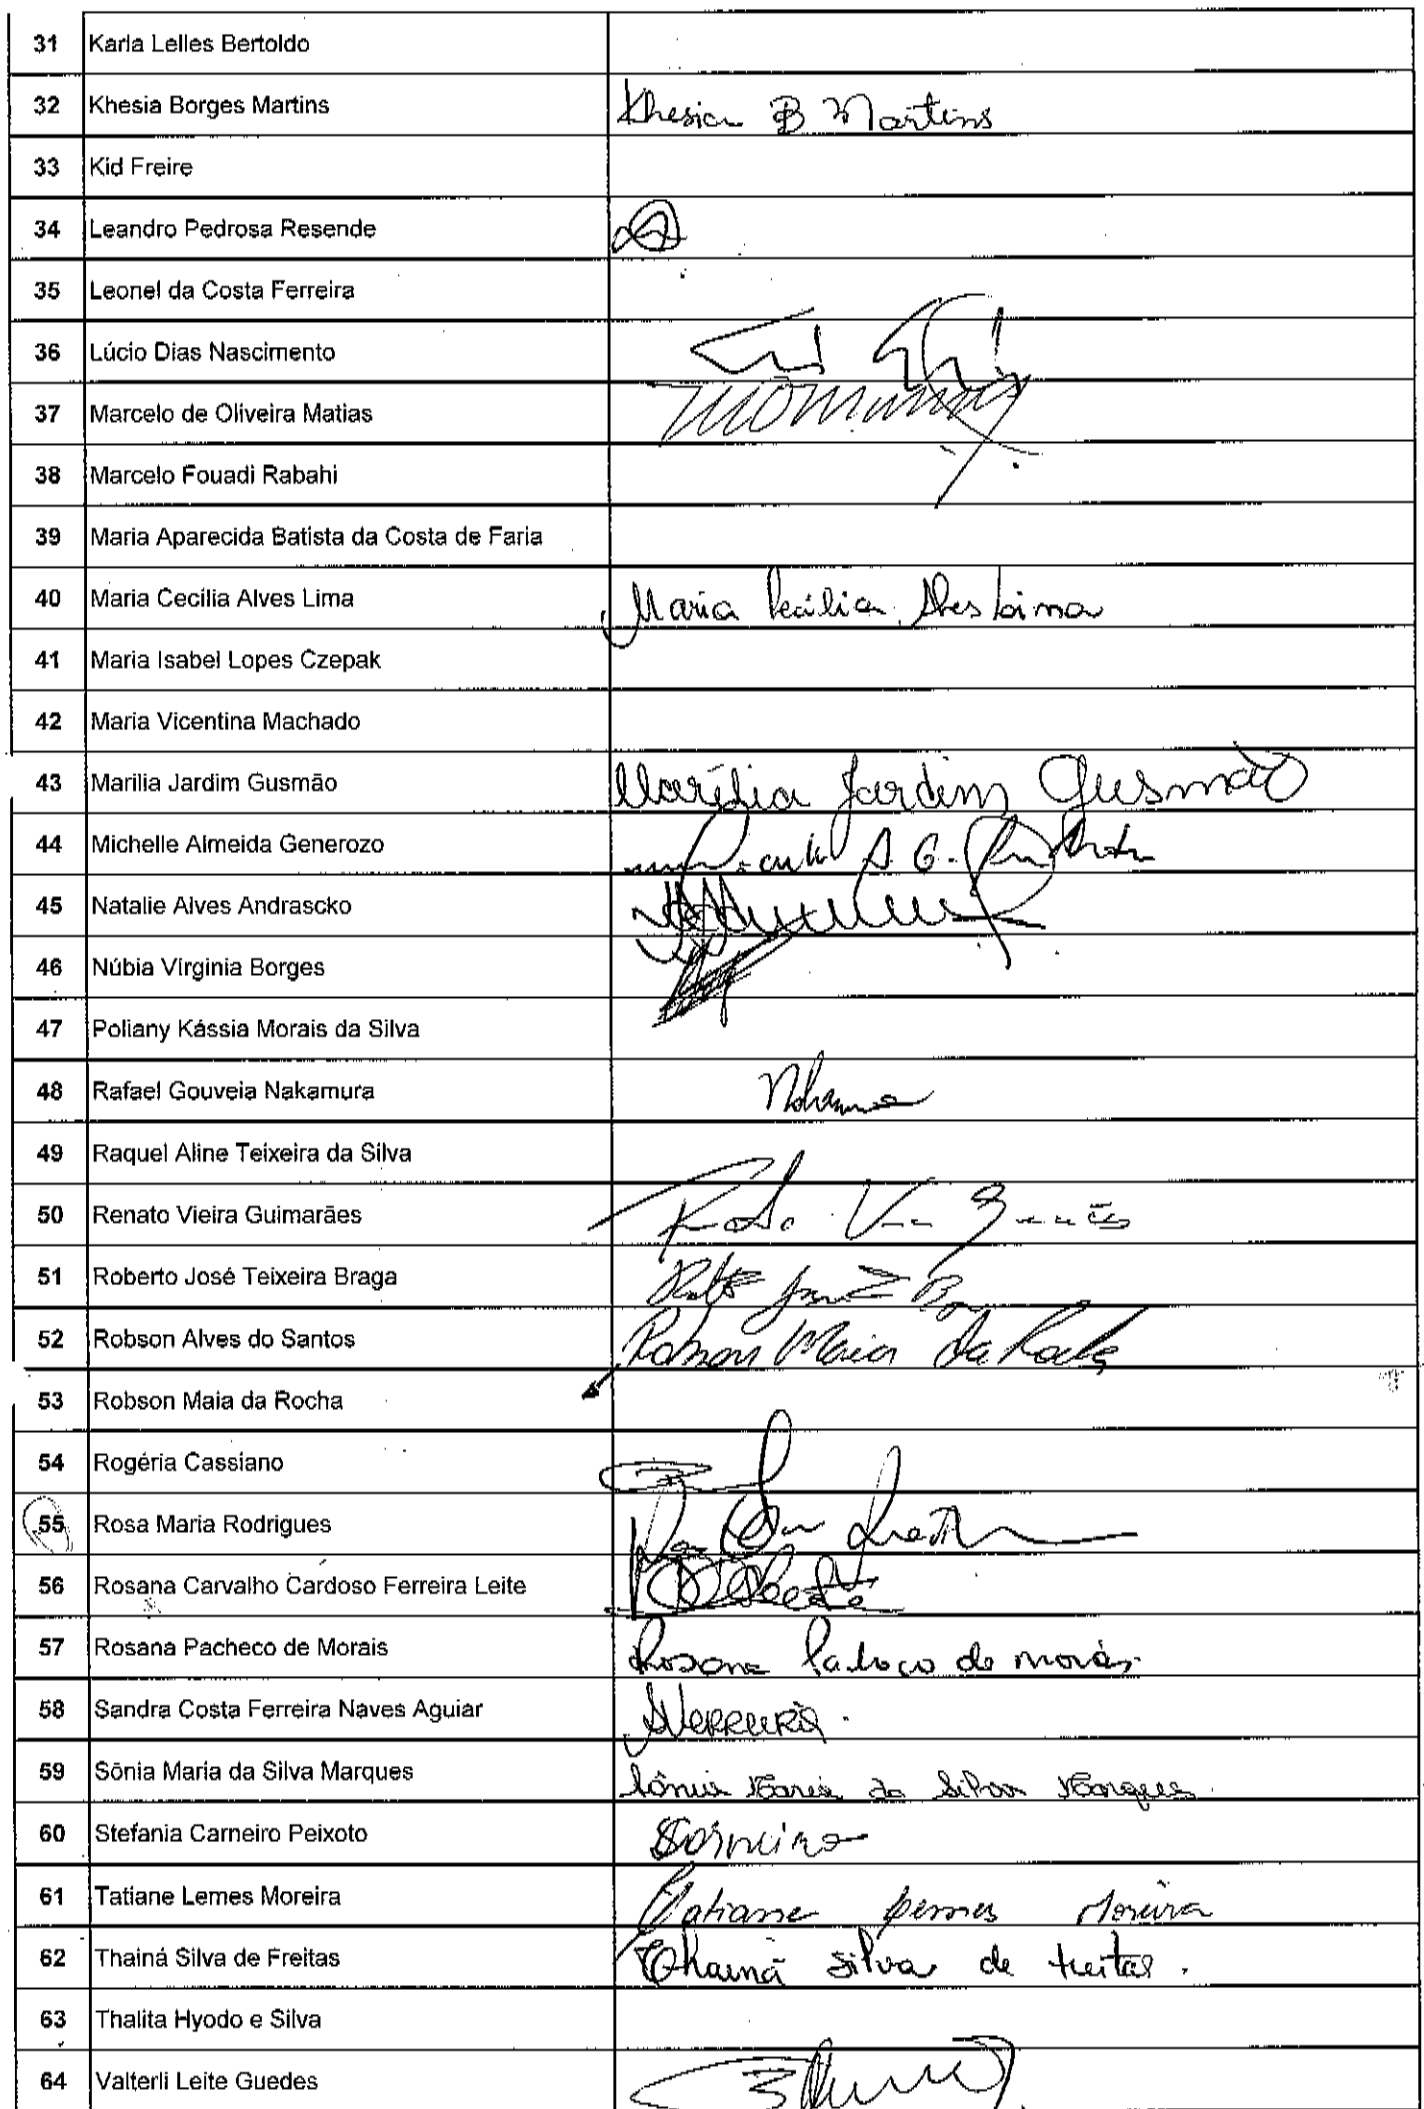 31 Karla Lelles Bertoldo
32 Khesia Borges Martins Khesia B Martins
33 Kid Freire
34 Leandro Pedrosa Resende
35 Leonel da Costa Ferreira
36 Lúcio Dias Nascimento
37 Marcelo de Oliveira Matias
38 Marcelo Fouadi Rabahi
39 Maria Aparecida Batista da Costa de Faria
40 Maria Cecília Alves Lima Maria Cecília Alves Lima
41 Maria Isabel Lopes Czepak
42 Maria Vicentina Machado
43 Marilia Jardim Gusmão Marília Jardim Gusmão
44 Michelle Almeida Generozo A. G.
45 Natalie Alves Andrascko
46 Núbia Virginia Borges
47 Poliany Kássia Morais da Silva
48 Rafael Gouveia Nakamura
49 Raquel Aline Teixeira da Silva
50 Renato Vieira Guimarães
51 Roberto José Teixeira Braga
52 Robson Alves do Santos Robson Maia da Rocha
53 Robson Maia da Rocha
54 Rogéria Cassiano
55 Rosa Maria Rodrigues
56 Rosana Carvalho Cardoso Ferreira Leite
57 Rosana Pacheco de Morais Rosana Pacheco de Morais
58 Sandra Costa Ferreira Naves Aguiar
59 Sônia Maria da Silva Marques Sônia Maria da Silva Marques
60 Stefania Carneiro Peixoto SCarneiro
61 Tatiane Lemes Moreira Tatiane Lemes Moreira
62 Thainá Silva de Freitas Thainá Silva de Freitas.
63 Thalita Hyodo e Silva
64 Valterli Leite Guedes